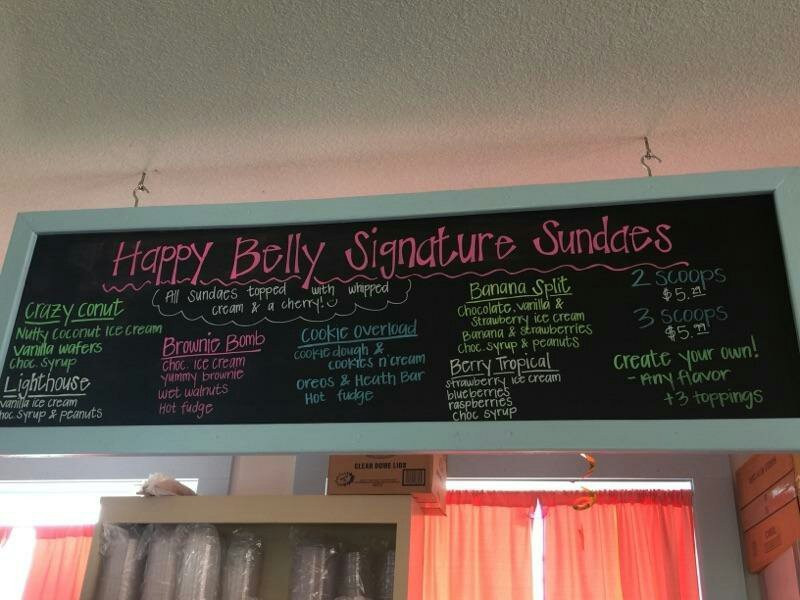 Happy Belly Signature Sundaes
All sundaes topped with whipped
cream & a cherry!
Crazy Conut
Nutty Coconut Ice Cream
Vanilla wafers
Choc. syrup
Lighthouse
Vanilla ice cream
hoc syrup & peanuts
Brownie Bomb
Choc. ice cream
yummy brownie
wet walnuts
Hot fudge
Cookie Overload
cookie dough &
cookies n' cream
Oreos & Heath Bar
Hot fudge
Banana Split
Chocolate, vanilla &
Strawberry ice cream
Banana & strawberries
Choc. syrup & peanuts
Berry Tropical
strawberry ice cream
blueberries
raspberries
choc syrup
2 scoops
$5.
3 scoops
$5.
create your own!
- any flavor
+3 toppings
CLEAR DOME LIDS